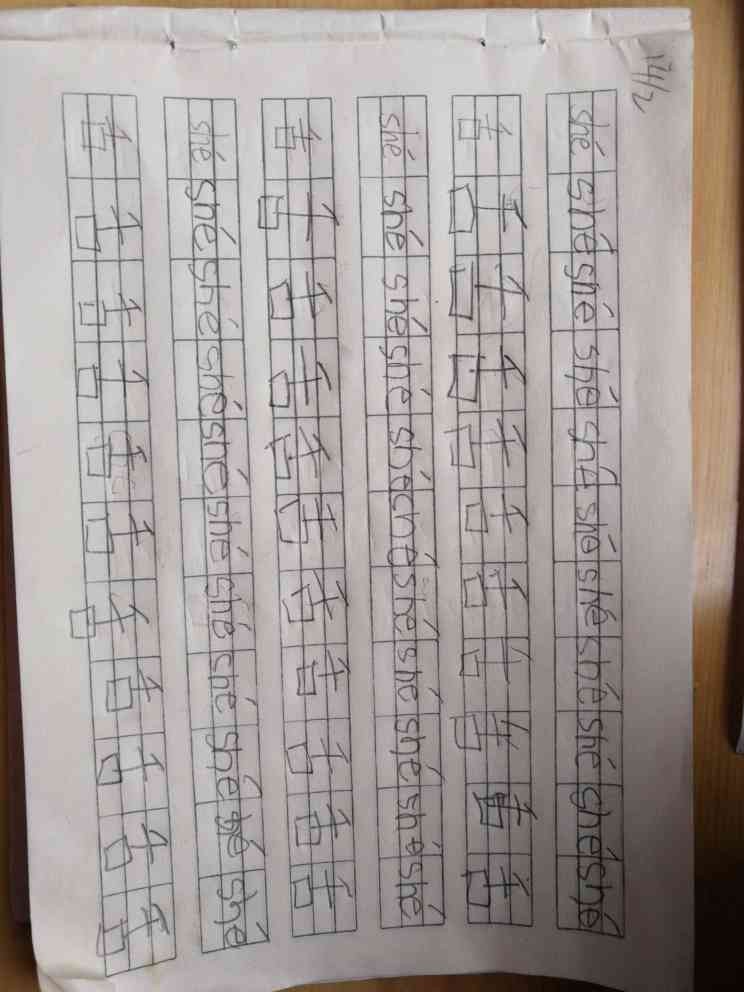 14/2
shé shé shé shé shé shé shé shé shé shé shé
舌 舌 舌 舌 舌 舌 舌 舌 舌 舌 舌
shé shé shé shé shé cné shé shé shé shé shé
舌 舌 舌 舌 舌 舌 舌 舌 舌 舌 舌
shé shé shé shé shé shé shé shé shé shé shé
舌 舌 舌 舌 舌 舌 舌 舌 舌 舌 舌